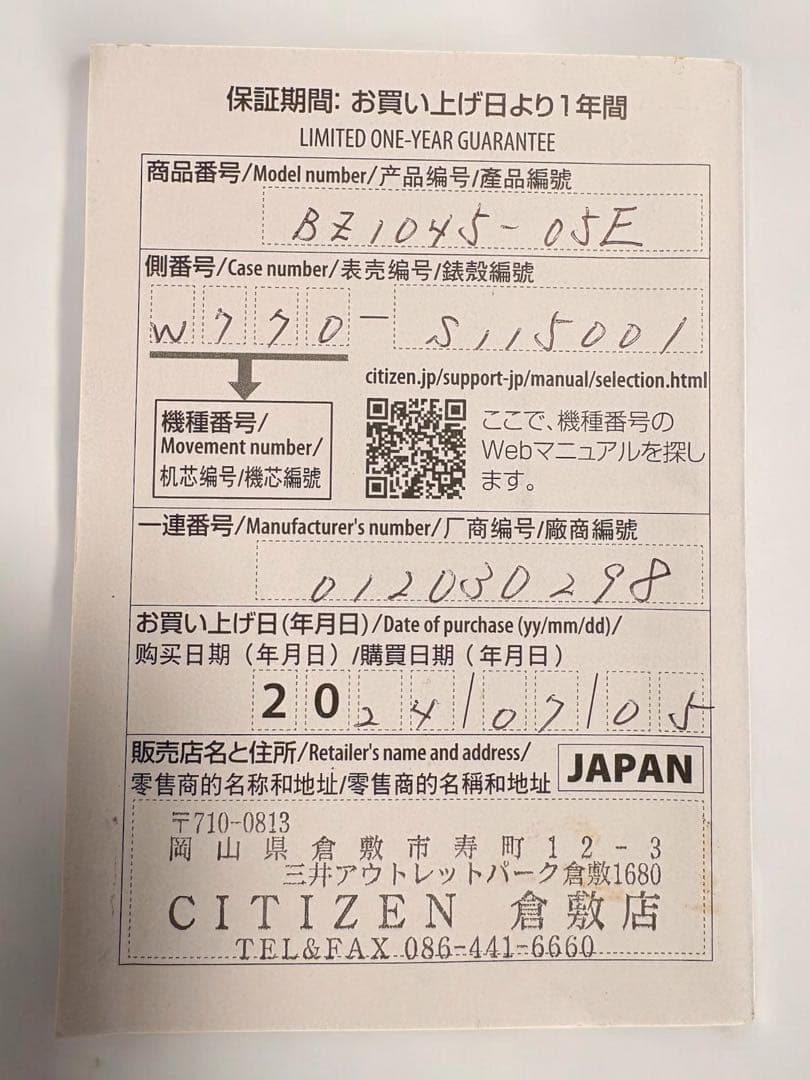 保証期間: お買い上げ日より1年間
LIMITED ONE-YEAR GUARANTEE
商品番号/Model number/产品编号/產品編號
BZ1045-05E
側番号/Case number/表壳编号/錶殼編號
W770-S115001
citizen.jp/support-jp/manual/selection.html
機種番号/
Movement number/
机芯编号/機芯編號
ここで、機種番号の
Webマニュアルを探し
ます。
一連番号/Manufacturer's number/厂商编号/廠商編號
012030298
お買い上げ日(年月日)/Date of purchase (yy/mm/dd)/
购买日期（年月日）/購買日期（年月日）
2024/07/05
販売店名と住所/Retailer's name and address/
零售商的名称和地址/零售商的名稱和地址
JAPAN
〒710-0813
岡山県倉敷市寿町12-3
三井アウトレットパーク倉敷1680
CITIZEN 倉敷店
TEL&FAX 086-441-6660